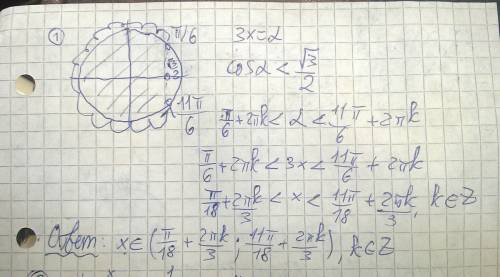 ① π/6 3x=α
√3/2 cosα < √3/2
11π/6 π/6+2πk < α < 11π/6 + 2πk
π/6 + 2πk < 3x < 11π/6 + 2πk
π/18 + 2πk/3 < x < 11π/18 + 2πk/3, k∈Z
Ответ: x∈(π/18 + 2πk/3 ; 11π/18 + 2πk/3), k∈Z